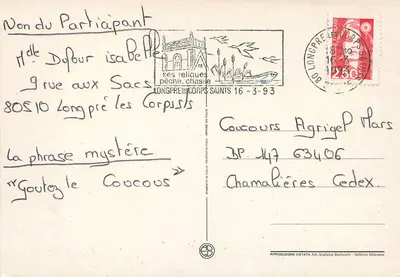 Non du Participant
Mlle Dufour isabelle
9 rue aux Sacs
80510 Longpré les Corpssts
La phrase mystère
"Goutez le Coucous"
ses reliques
pêche, chasse
LONGPRE LES CORPS SAINTS 16-3-93
80 LONGPRE
16 H
16-3
1993
2,50
Coucours Agrigel Mars
BP 147 63406
Chamalières Cedex.
RIPRODUZIONE VIETATA